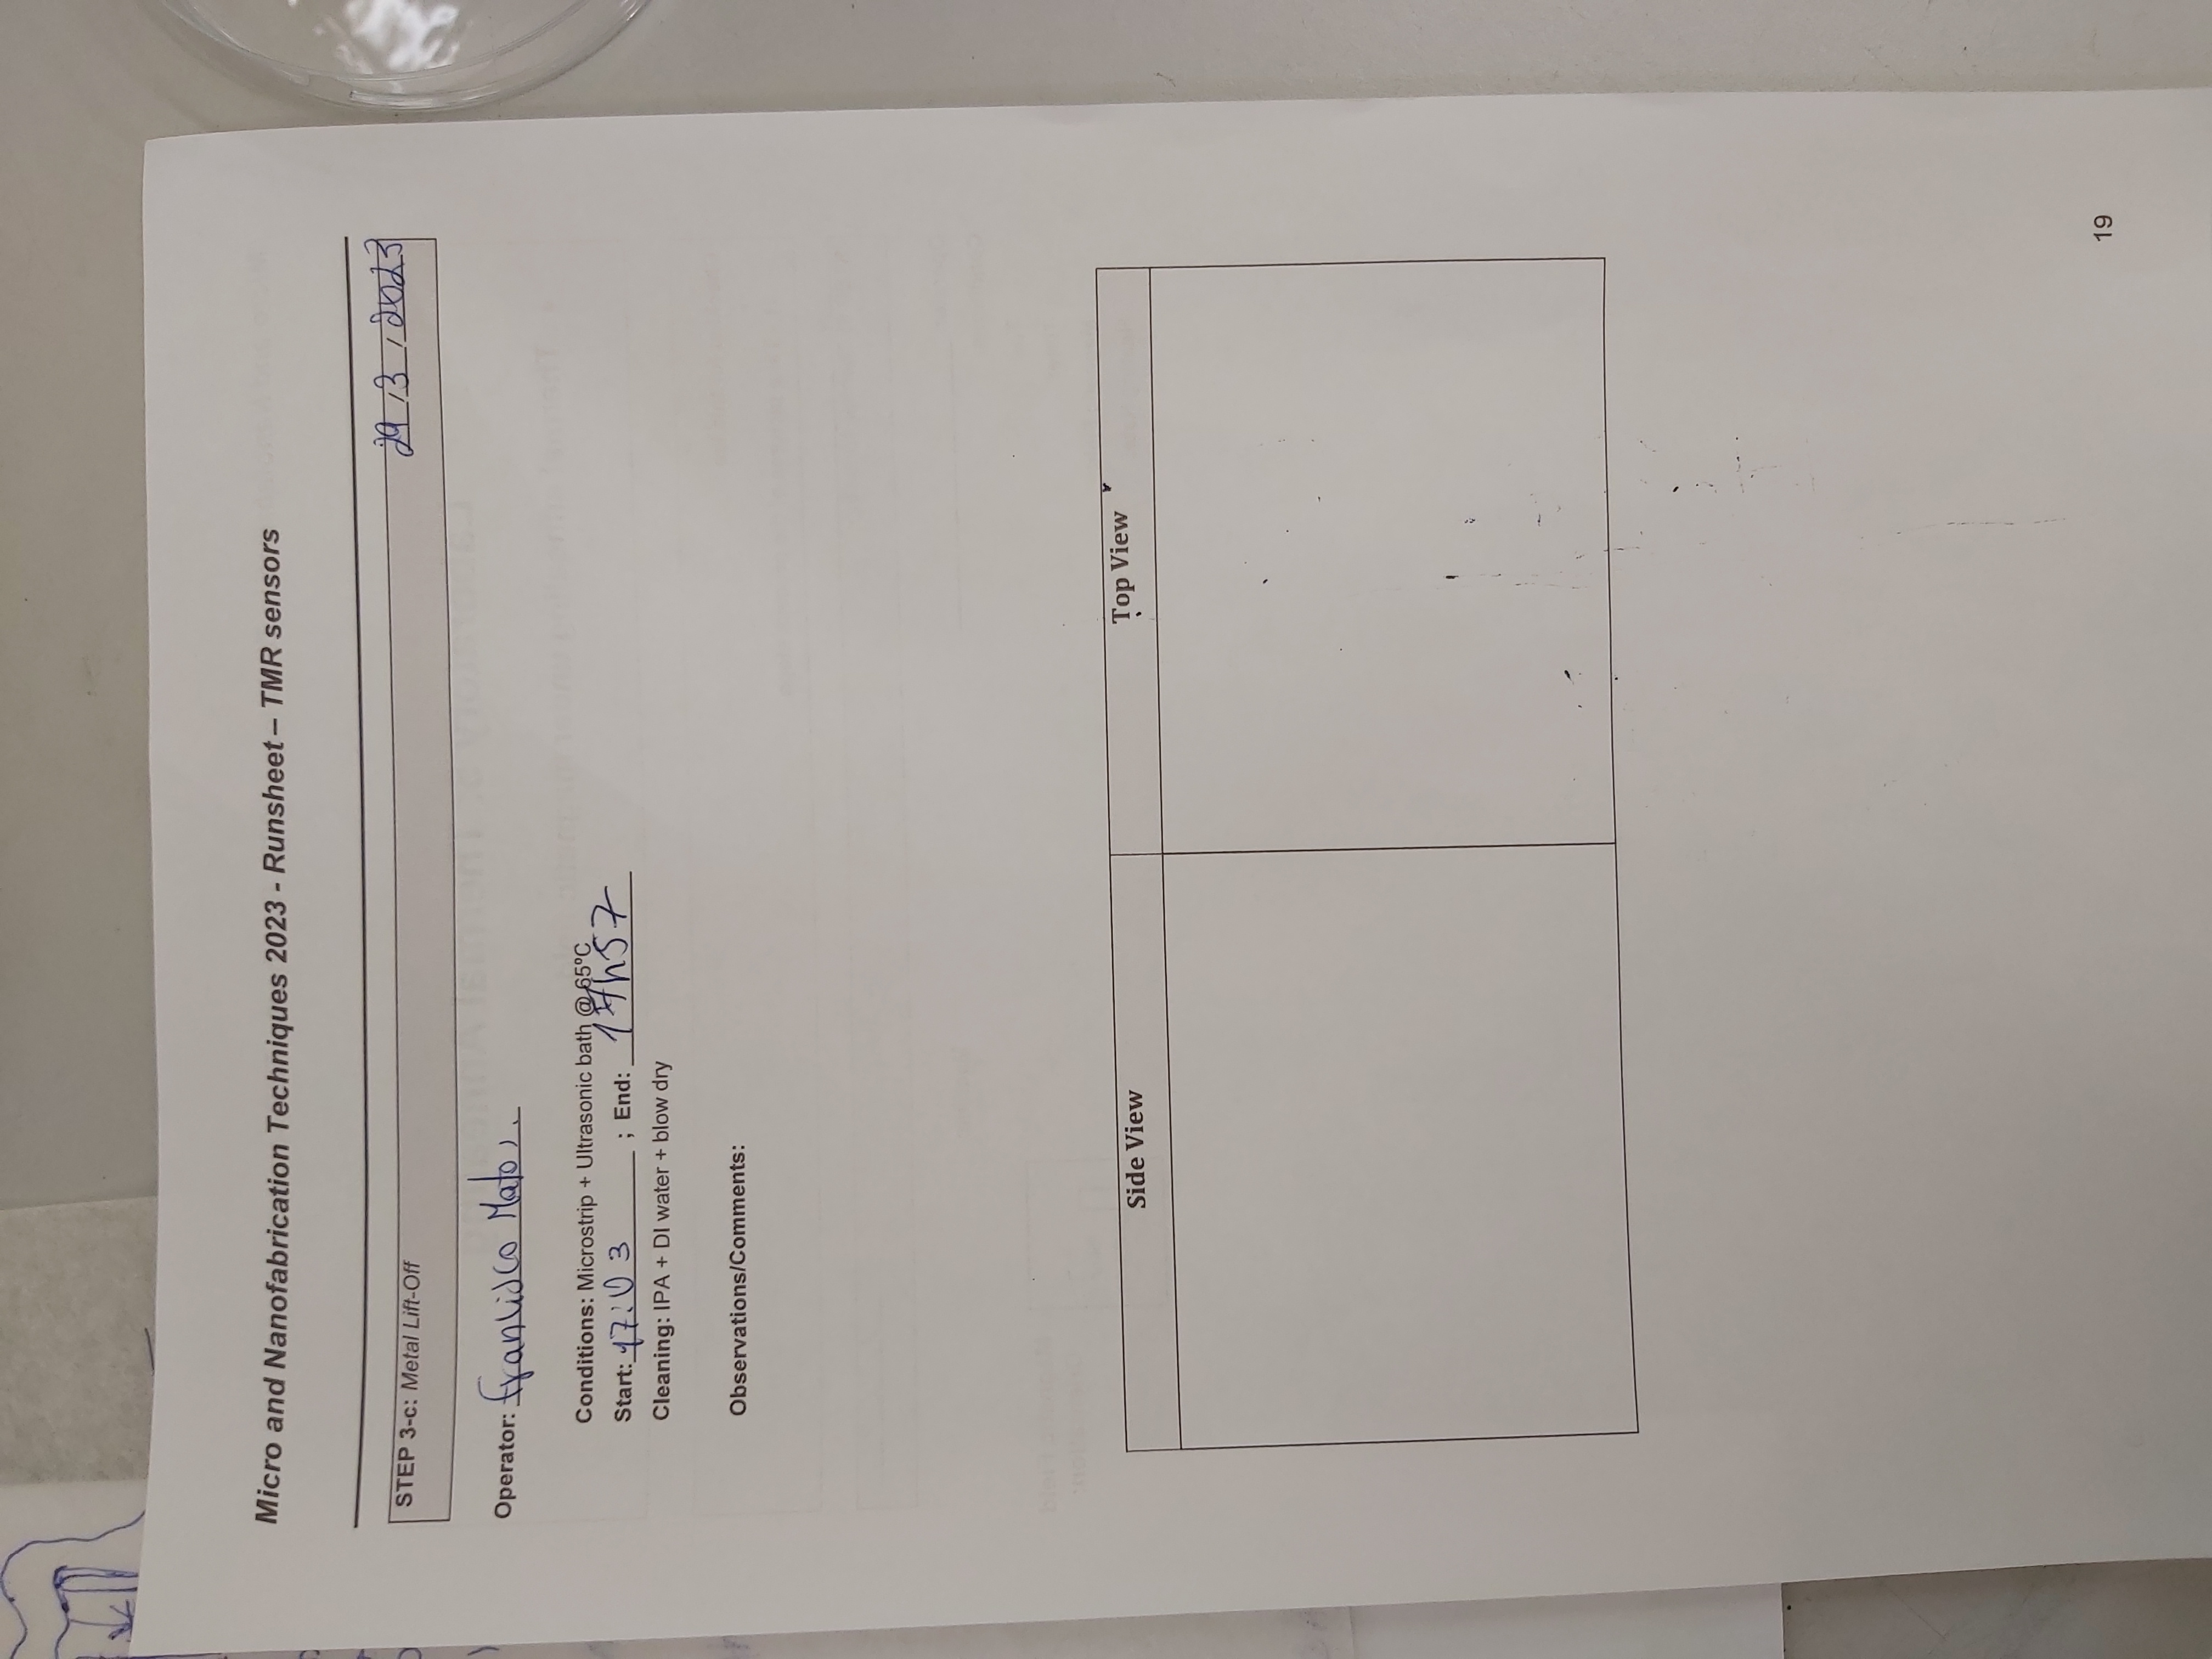 Micro and Nanofabrication Techniques 2023 - Runsheet – TMR sensors
STEP 3-c: Metal Lift-Off 29/3/2023
Operator: Francisco Matos.
Conditions: Microstrip + Ultrasonic bath @ 65ºC
Start: 17:03 ; End: 17h57
Cleaning: IPA + DI water + blow dry
Observations/Comments:
Side View Top View
19